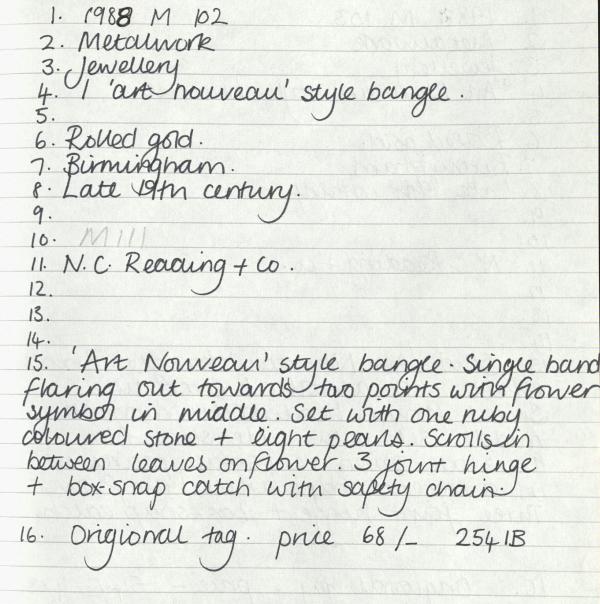 1. 1988 M 102
2. Metalwork
3. Jewellery
4. 1 'art nouveau' style bangle.
5.
6. Rolled gold.
7. Birmingham.
8. Late 19th century.
9.
10. M111
11. N.C. Reading + Co.
12.
13.
14.
15. 'Art Nouveau' style bangle. Single band
flaring out towards two points with flower
symbol in middle. Set with one ruby
coloured stone + eight pearls. Scrolls in
between leaves on flower. 3 joint hinge
+ box-snap catch with safety chain.
16. Origional tag. price 68/- 2541B